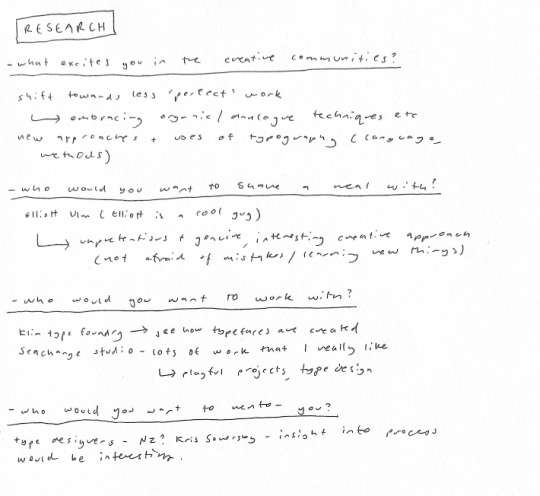 RESEARCH
- what excites you in the creative communities?
shift towards less 'perfect' work
↳ embracing organic / analogue techniques etc
new approaches + uses of typography (language,
methods)
- who would you want to share a meal with?
Elliott Ulm (Elliott is a cool guy)
↳ unpretentious + genuine, interesting creative approach
(not afraid of mistakes / learning new things)
- who would you want to work with?
Klim type foundry → see how typefaces are created
Seachange studio - lots of work that I really like
↳ playful projects, type design
- who would you want to mentor you?
type designers - NZ? Kris Sowersby - insight into process
would be interesting.